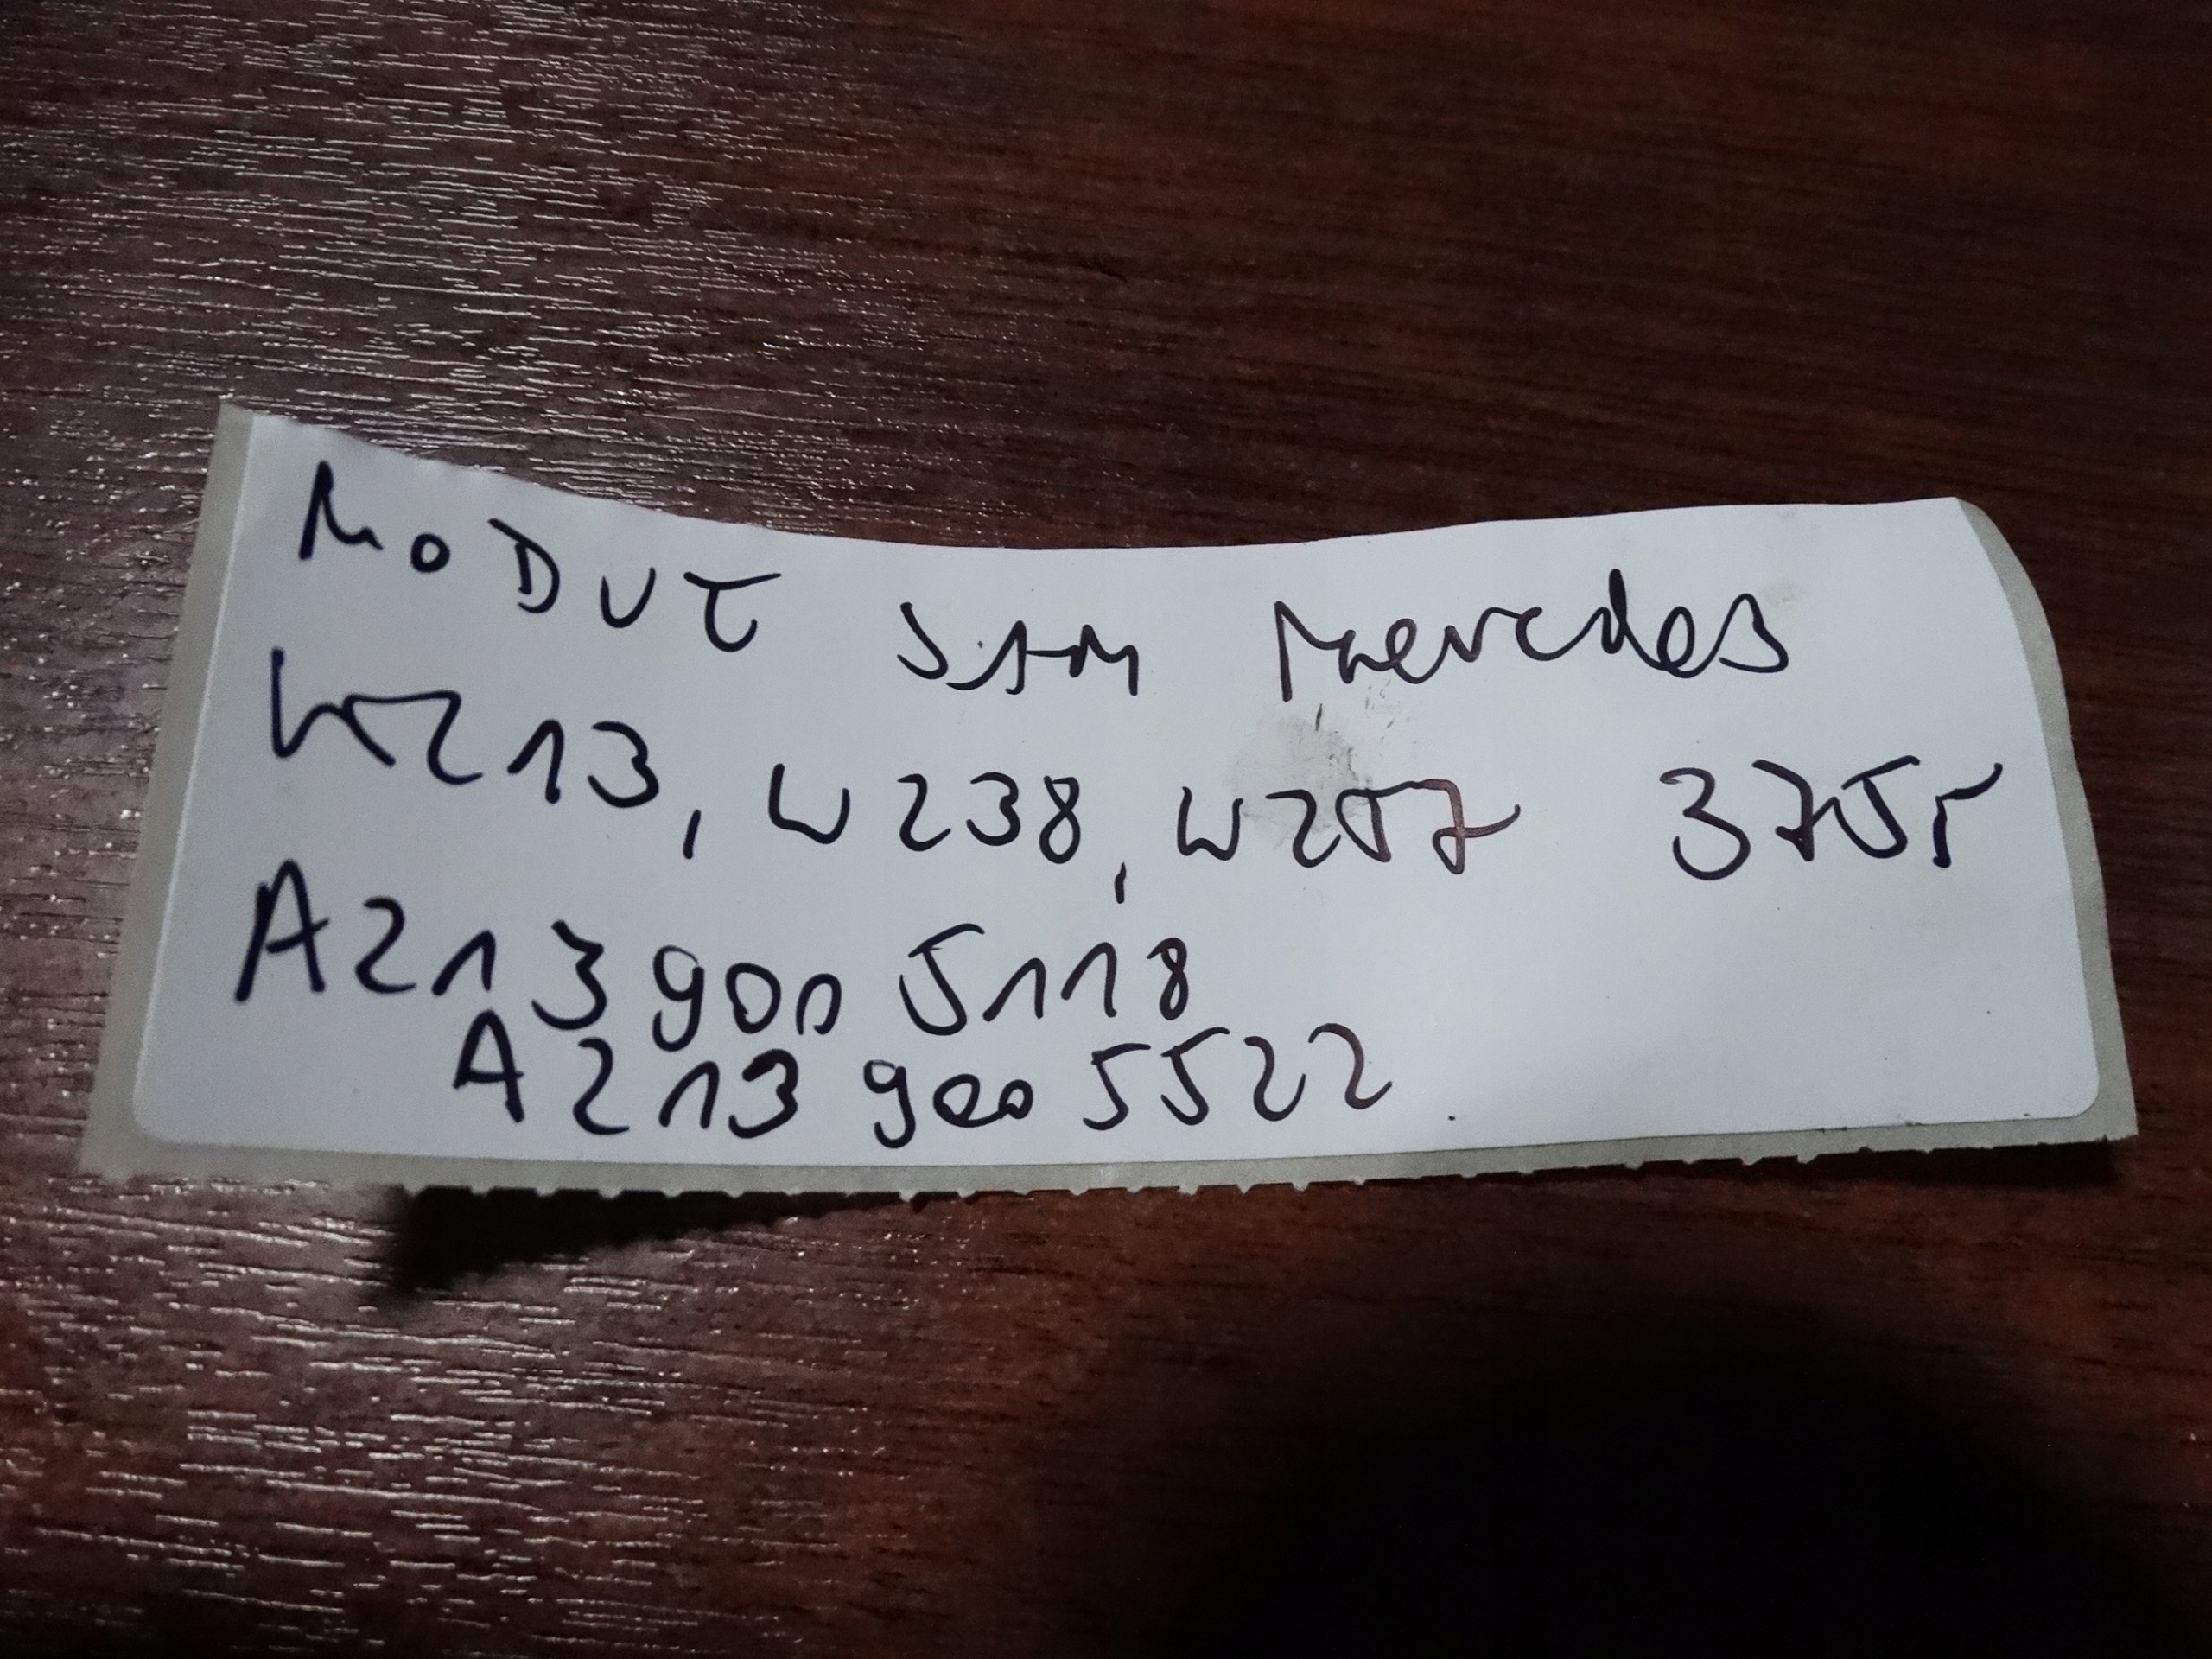 MODUŁ SAM Mercedes
W213, W238, W257 3755
A213 900 5118
A213 900 5522